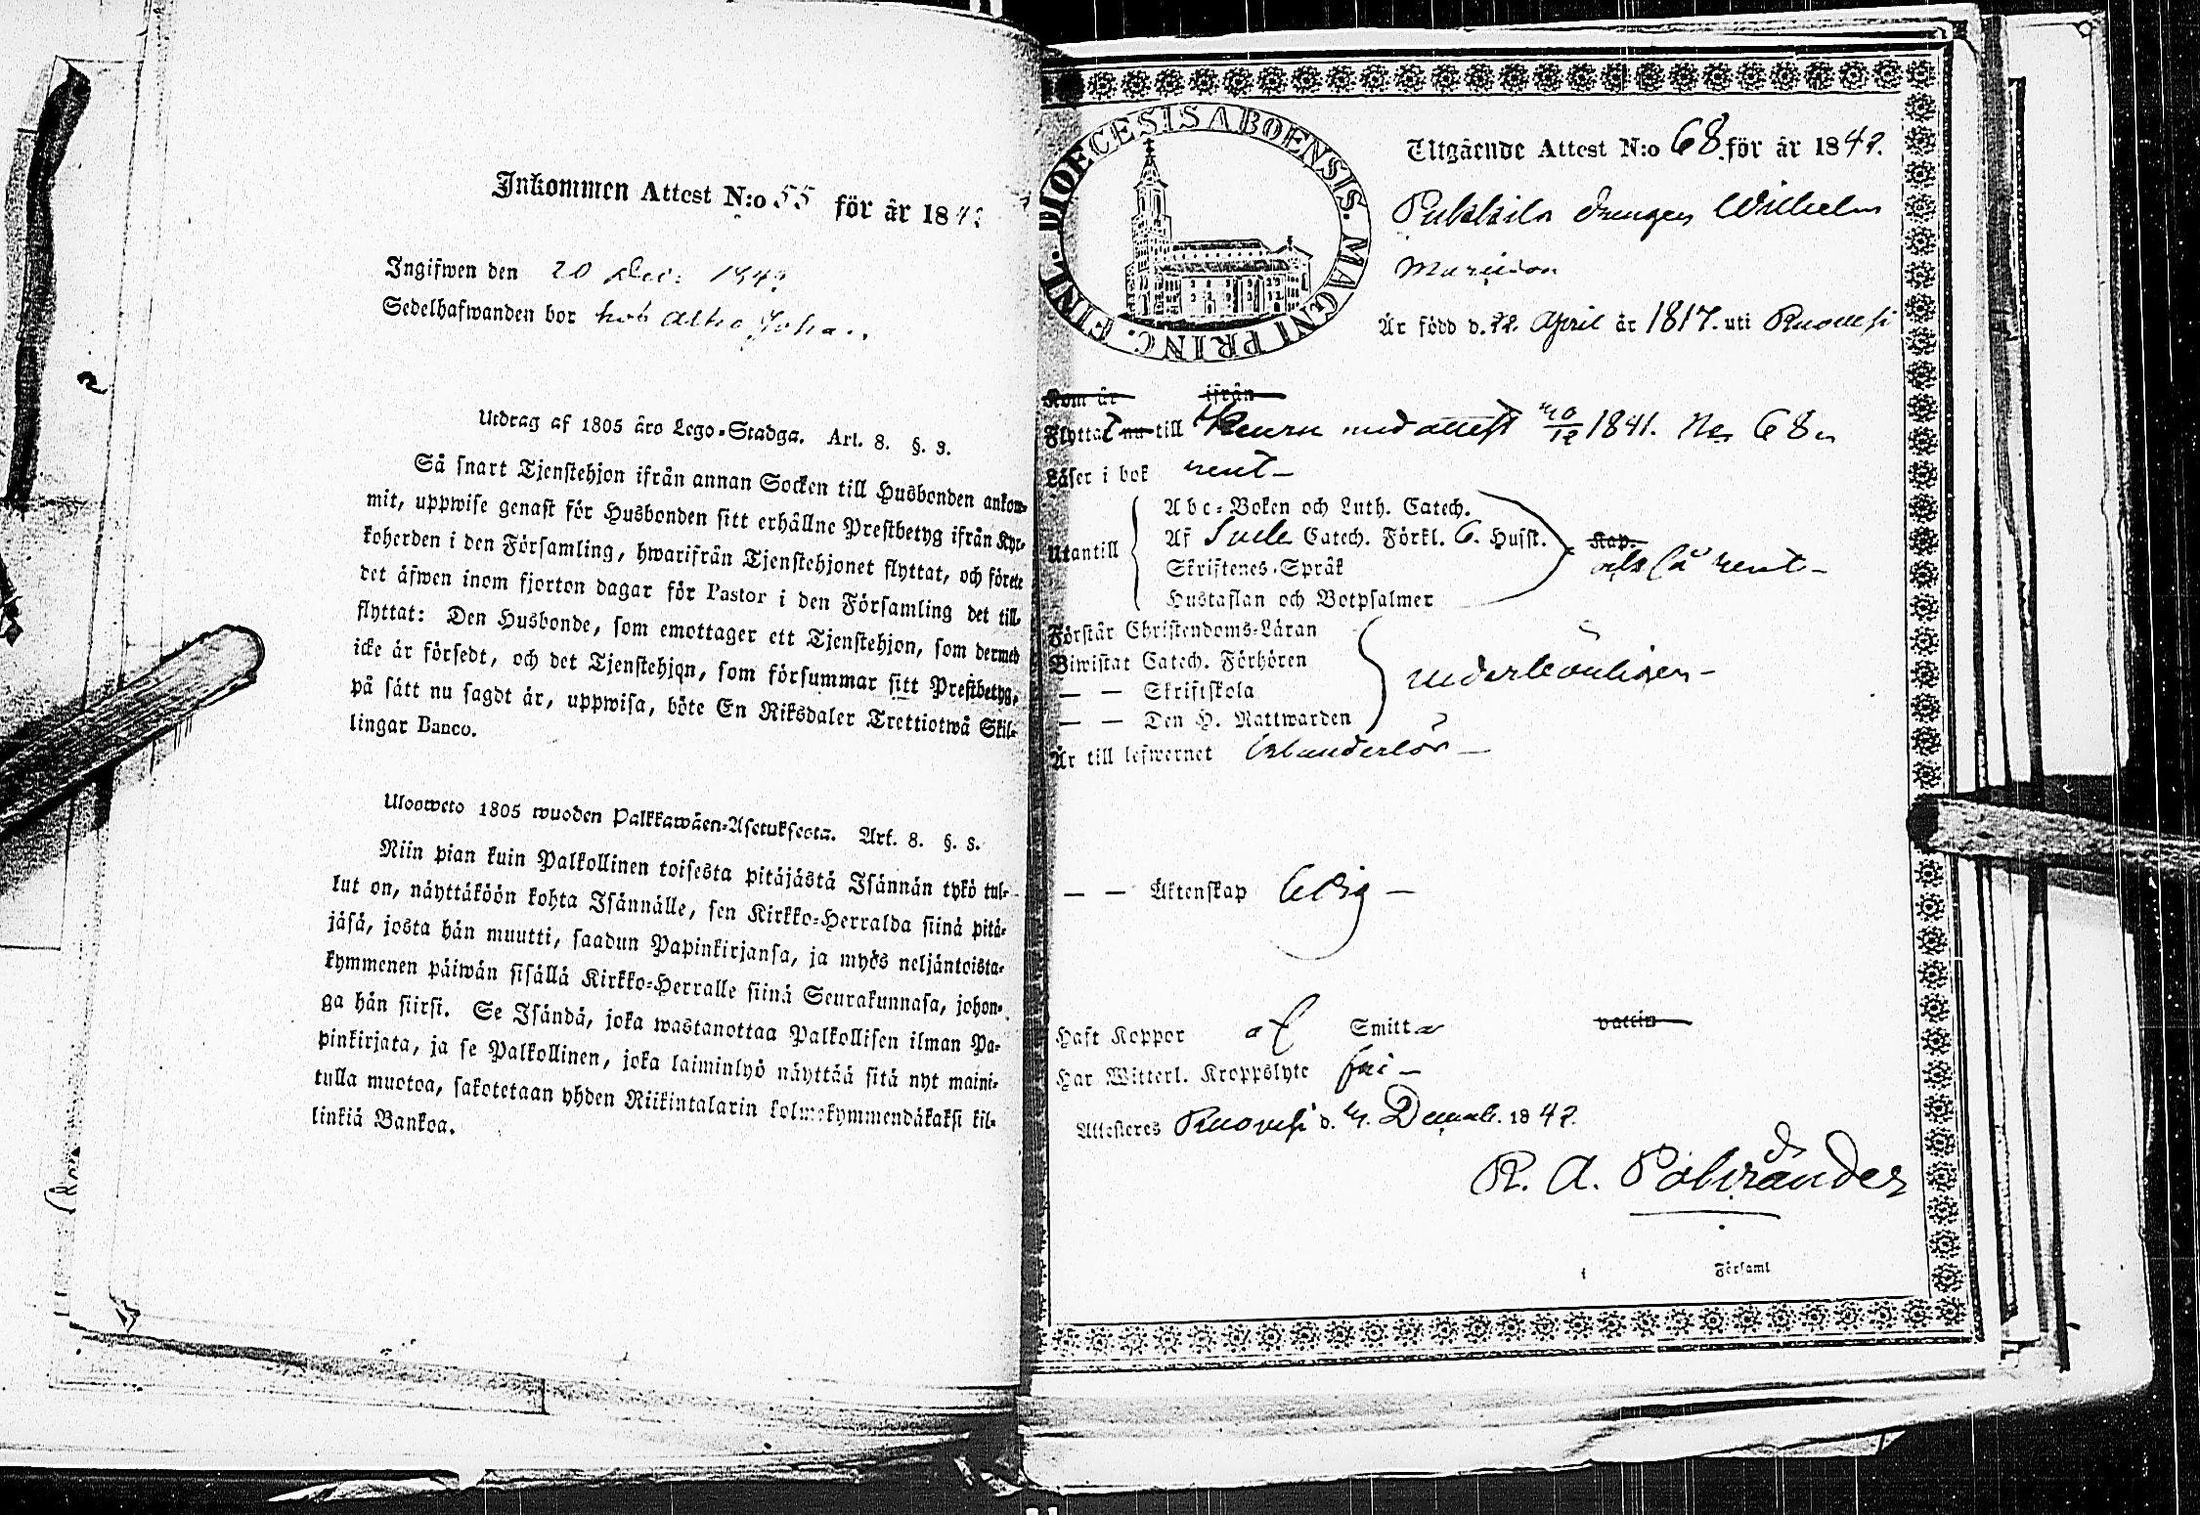 Inkommen Attest N:o 55 för år 1842
Ingifwen den 20 Dec: 1842
Sedelhafwanden bor hos Alho Johan
Utdrag af 1805 års Lego-Stadga. Art. 8. §. 3.
Så snart Tjenstehjon ifrån annan Socken till Husbonden ankom-
mit, uppwise genast för Husbonden sitt erhållne Prestbetyg ifrån Kyr-
koherden i den Församling, hwarifrån Tjenstehjonet flyttat, och förete
det äfwen inom fjorton dagar för Pastor i den Församling det till-
flyttat: Den Husbonde, som emottager ett Tjenstehjon, som dermed
icke är försedt, och det Tjenstehjon, som försummar sitt Prestbetyg,
på sätt nu sagdt är, uppwisa, böte En Riksdaler Trettiotwå Skil-
lingar Banco.
Ulosweto 1805 wuoden Palkkawäen-Asetuksesta. Art. 8. §. 3.
Niin pian kuin Palkollinen toisesta pitäjästä Isännän tykö tul-
lut on, näyttäköön kohta Isännälle, sen Kirkko-Herralda siinä pitä-
jäsä, josta hän muutti, saadun Papinkirjansa, ja myös neljäntoista-
kymmenen päiwän sisällä Kirkko-Herralle siinä Seurakunnasa, johon-
ga hän siirsi. Se Isändä, joka wastanottaa Palkollisen ilman Pa-
pinkirjata, ja se Palkollinen, joka laiminlyö näyttää sitä nyt maini-
tulla muotoa, sakotetaan yhden Riikintalarin kolmekymmendäkaksi kil-
linkiä Bankoa.
DIOECESIS ABOENSIS. MAGNI PRINC. FINL.
Utgående Attest N:o 68 för år 1842.
Pukkila drengen Wilhelm
Är född d. 22. April år 1817. uti Ruovesi
Kom år ifrån
Flyttat nu till Keuru med attest 1841. No 68
Läser i bok rent
Utantill
Abc-Boken och Luth. Catech.
Af Catech. Förkl. Husst. Kap.
Skriftenes Språk
alla så rent
Hustaflan och Botpsalmer
Förstår Christendoms-Läran
Biwistat Catech. Förhören
— — Skriftskola
— — Den H. Nattwarden
Är till lefwernet oklanderlös
— — Äktenskap ledig
Haft Koppor af Smitta vaccin
Har Witterl. Kroppslyte fri
Attesteres Ruovesi d. Decemb. 1842.
R. A.
i Församl